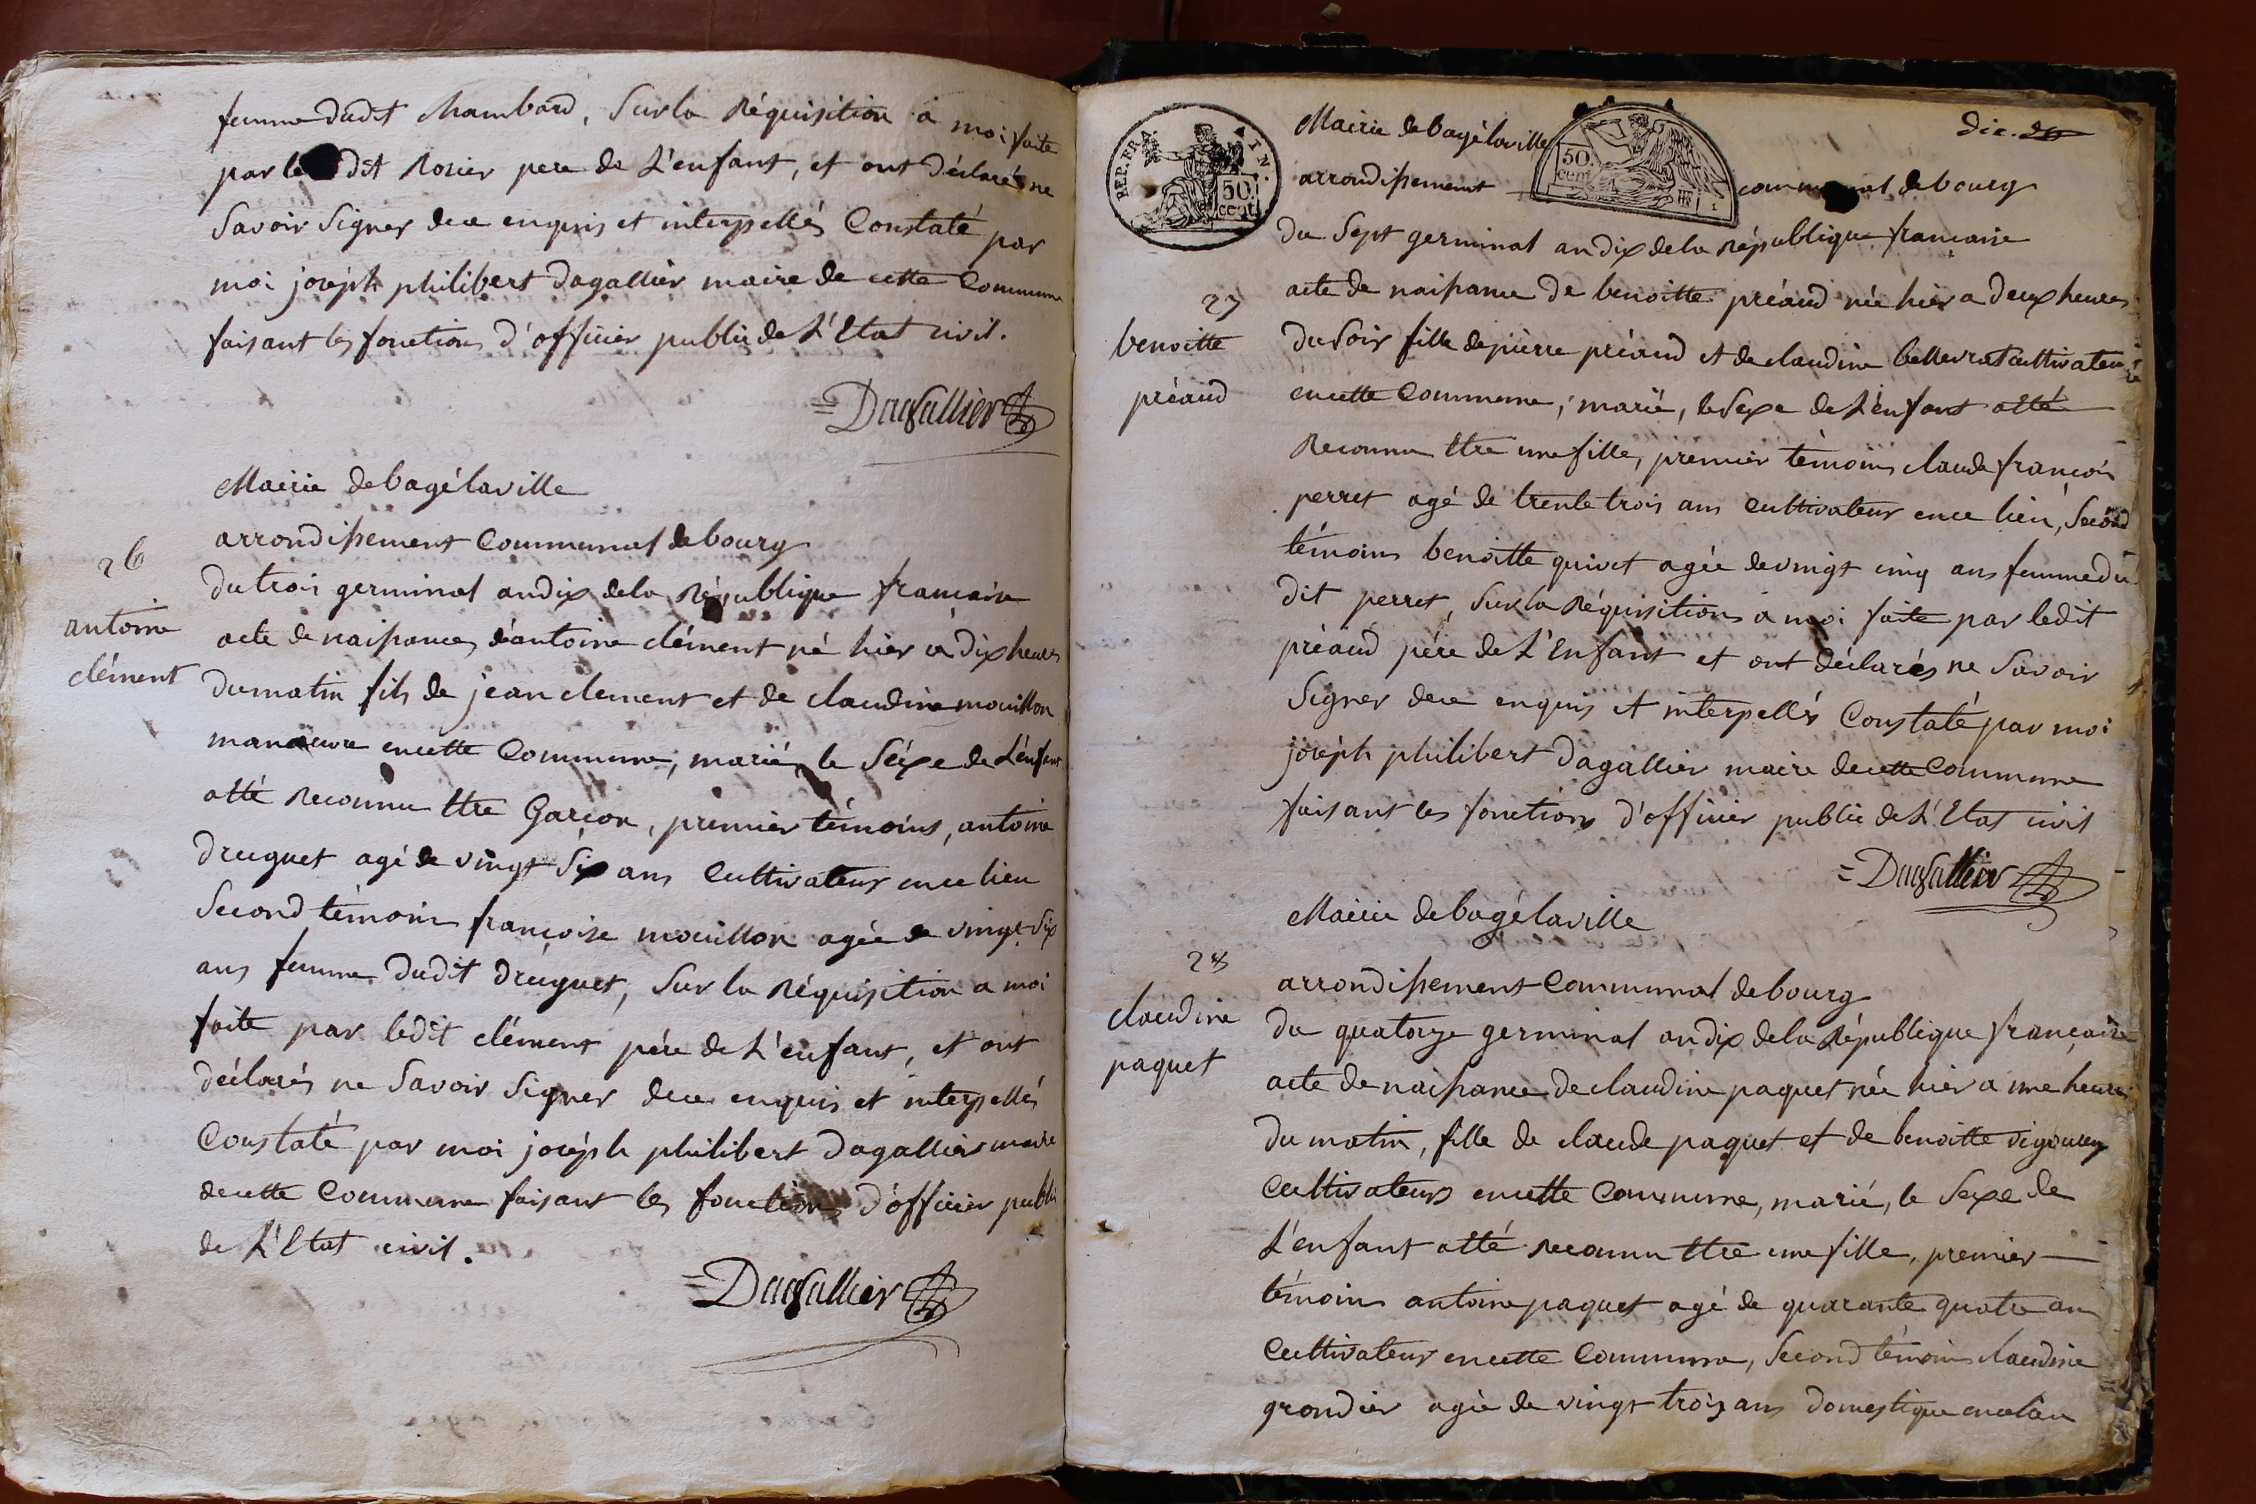 femme dudit Chambard, Sur la Réquisition à moi faite
par le dit Rosier pere de L'enfant, et ont déclarés ne
Savoir Signer de ce enquis et interpellés Constaté par
moi joséph philibert dagallier maire de cette Commune
faisant les fonctions d'officier public de L'Etat civil.
= Dagallier
Mairie de bagélaville
arrondissement Communal de bourg
26
du trois germinal an dix de la République francaise
antoine
acte de naissance d'antoine clément né hier à dix heures
clément
du matin fils de jean clement et de claudine mouillon
manoeuvre en cette Commune, marié, le Séxe de L'enfant
atté Reconnu Etre Garçon, premier témoins, antoine
dreuguet agé de vingt Six ans Cultivateur en ce lieu
Second témoin françoise mouillon agée de vingt Six
ans femme dudit dreuguet, Sur la Réquisition a moi
faite par ledit clément pére de L'enfant, et ont
déclarés ne Savoir Signer de ce enquis et interpellés
Constaté par moi joséph philibert dagallier maire
de cette Commune faisant les fonctions d'officier public
de L'Etat civil.
= Dagallier
dix.
REP. FRA. 50 cent
AIN.
50. cent
Mairie de bagélaville
arrondissement communal de bourg
du Sept germinal an dix de la République francaise
27
acte de naissance de benoitte préaud née hier a deux heures
benoitte
du Soir fille de pierre préaud et de claudine bellevrat cultivateur
préaud
en cette Commune, marié, le Sexe de L'enfant atté
Reconnu Etre une fille, premier témoins claude françois
perret agé de trente trois ans cultivateur en ce lieu, Second
témoins benoitte quivet agée de vingt cinq ans femme du
dit perret, Sur la Réquisition a moi faite par ledit
préaud pére de L'Enfant et ont déclarés ne Savoir
Signer de ce enquis et interpellés Constaté par moi
joséph philibert dagallier maire de cette Commune
faisant les fonctions d'officier public de L'Etat civil
= Dagallier
Mairie de bagélaville
28
arrondissement Communal de bourg
claudine
du quatorze germinal an dix de la République française
paquet
acte de naissance de claudine paquet née hier a une heure
du matin, fille de claude paquet et de benoitte
Cultivateurs en cette Commune, marié, le Sexe de
L'enfant atté reconnu Etre une fille, premier
témoins antoine paquet agé de quarante quatre ans
Cultivateur en cette Commune, Second témoins claudine
grondier agée de vingt trois ans domestique en ce lieu